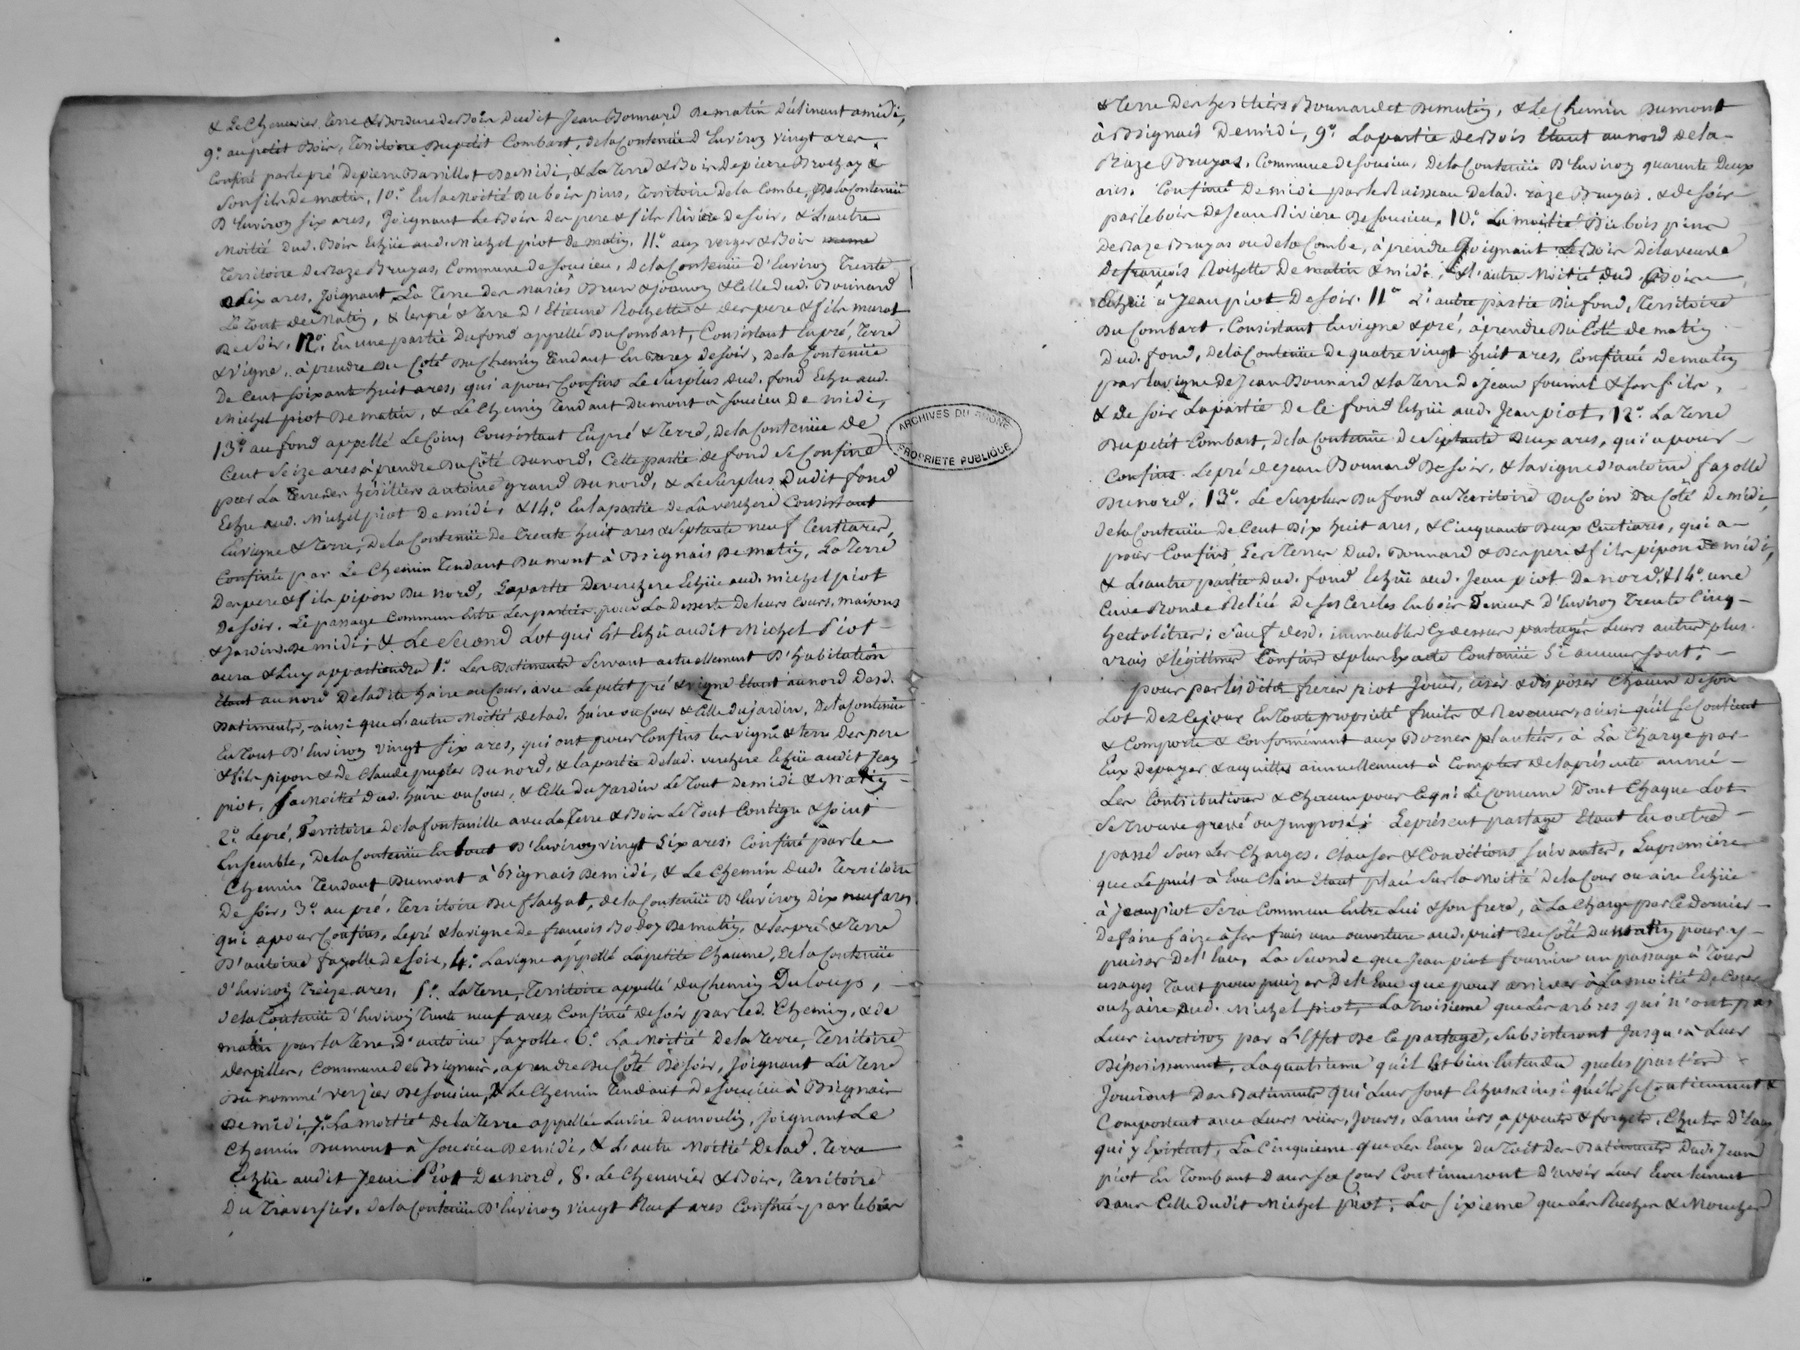 & le Chenevier, terre & Bordure de Bois dudit Jean Bonnard de matin déclinant a midi,
9.° au petit Bois, Territoire du petit Combart, de la Contenüe d'Environ vingt ares
Confiné par le pré de pierre Barillot de midi, & la Terre & Bois de pierre Brochay &
son fils de matin, 10.° En la Moitié du bois pins, territoire de la Combe, de la Contenüe
D'Environ six ares, Joignant Le Bois des pere & fils Riviere de soir, & L'autre
Moitié dud. Bois Echüe aud. Michel piot de matin. 11.° aux verger & Bois
Territoire de Raze Bruyas, Commune de Soucieu, de la Contenüe d'Environ Trente
six ares, Joignant La Terre des Mariés Brun & Joanon & Celle dud. Bonnard
Le Tout de Matin, & les pré & Terre d'Etienne Rolzette & des pere & fils murat
de soir. 12.° En une partie du fond appellé du Combart, Consistant En pré, Terre
& vigne, à prendre du Côté du Chemin Tendant En de soir, de la Contenüe
De Cent soixante huit ares, qui a pour Confins Le Surplus dud. fond Echu aud.
Michel piot De matin, & Le Chemin Tendant du mont à Soucieu De midi,
13.° au fond appellé Le Coin, Consistant En pré & Terre, de la Contenüe De
Cent seize ares à prendre du Côté du nord. Cette partie de fond se Confine
par La Terre des héritiers antoine grand du nord, & Le Surplus dudit fond
Echu aud. Michel piot de midi; & 14.° En la partie de La verchere Consistant
En vigne & terre, de la Contenüe de Trente huit ares & septante neuf Centiares,
Confinée par Le Chemin Tendant du mont à Brignais de matin, La Terre
Des pere & fils pipon du nord, La partie de verchere Echüe aud. Michel piot
de soir. Le passage Commun Entre Les parties pour La Desserte de leurs Cours, maisons
& Jardin de midi; & Le Second Lot qui Est Echû audit Michel Piot
aura & Luy appartiendra 1.° Les Batiments servant actuellement D'habitation
Etant au nord de la dite haire ou Cour, avec Le petit pré & vigne Etant au nord desd.
Batiments, ainsi que L'autre Moitié de lad. haire ou Cour & Celle du jardin, De la Contenüe
En Tout D'Environ vingt six ares, qui ont pour Confins les vigne & terre Des pere
& fils pipon & de Claude du nord, & la partie de lad. verchere Echüe audit Jean
piot, La Moitié dud. haire ou Cour, & Celle du Jardin Le Tout de midi & Matin
2.° Le pré, Territoire de la fontanille avec La Terre & Bois Le Tout Contigu & Joint
Ensemble, De la Contenüe En tout D'Environ vingt six ares. Confiné par le
Chemin Tendant du mont à Brignais de midi, & Le Chemin dud. Territoire
De soir, 3.° au pré, Territoire du flachat, de la Contenüe D'Environ Dix neuf ares
qui a pour Confins, Le pré & la vigne de françois De matin, & les pré & terre
D'antoine fayolle de soir, 4.° La vigne appellé La petite Chaume, De la Contenüe
D'Environ Treize ares, 5.° La Terre, Territoire appellé du Chemin Du Loup,
de la Contenüe d'Environ Trente neuf ares Confiné de soir par led. Chemin, & de
matin par la Terre d'antoine fayolle. 6.° La Moitié De la Terre, Territoire
des pilles, Commune de Brignais, a prendre du Côté De soir, Joignant La Terre
Du nommé verjier de soucieu, & Le Chemin Tendant de soucieu à Brignais
De midi, 7.° La moitié de la Terre appellée du moulin, Joignant Le
Chemin du mont à Soucieu de midi, & L'autre Moitié De lad. Terre
Echüe audit Jean Piot du nord, 8.° Le Chenevier & Bois, Territoire
Du Traversier, de la Contenüe D'Environ vingt neuf ares Confiné par le bois
& Terre des heritiers Bonnard et De matin, & Le Chemin Du mont
à Brignais De midi, 9.° La partie de Bois Etant au nord de la
Raze Bruyas, Commune de Soucieu, de la Contenüe D'Environ quarante deux
ares. Confiné De midi par le Ruisseau de lad. raze Bruyas. & de soir
par le bois de Jean Riviere De soucieu. 10.° La moitié Du bois pins
de Raze Bruyas ou de la Combe, à prendre Joignant Le Bois De la veuve
de françois Rolzette De matin & midi, & l'autre Moitié dud. Bois
Echüe à Jean piot De soir. 11.° L'autre partie Du fond, Territoire
Du Combart, Consistant En vigne & pré, à prendre du Côté de matin
Dud. fond, de la Contenüe de quatre vingt huit ares, Confiné de matin
par la vigne de Jean Bonnard & la Terre de Jean fournel & son fils,
& de soir La partie De Ce fond Echüe aud. Jean piot, 12.° La Terre
Du petit Combart, de la Contenüe de septante Deux ares, qui a pour
Confins Le pré de Jean Bonnard de soir, & la vigne d'antoine fayolle
du nord. 13.° Le Surplus du fond au Territoire Du Coin du Côté de midi,
de la Contenüe de Cent Dix huit ares, & Cinquante Deux Centiares, qui a
pour Confins Les Terres Dud. Bonnard & Des pere & fils pipon de midi,
& L'autre partie Dud. fond Echüe aud. Jean piot De nord, & 14.° une
Cuve Ronde Reliée De ses Cercles En bois Teneur D'Environ Trente Cinq
hectolitres; Sauf desd. immeubles Cy dessus partagés Leurs autres plus
vrais & légitimes Confins & plus Exacte Contenüe Si aucuns sont;
pour par lesdits freres piot Jouir, user & disposer Chacun De son
Lot Dez Ce jour En toute propriété fruits & Revenus, ainsi qu'il se Contient
& Comporte & Conformément aux Bornes plantés, à La Charge par
Eux De payer & acquitter annuellement à Compter de la présente année
Les Contributions & Chacun pour Ce qui Le Concerne Dont Chaque Lot
se Trouve grevé ou Imposé; Le présent partage Etant En outre
passé Sous Les Charges, Clauses & Conditions suivantes, La premiere
que Le puit à Eau Claire Etant placé Sur la Moitié De la Cour ou aire Echüe
à Jean piot sera Commun Entre Lui & son frere, à La Charge par Ce Dernier
De faire faire à ses frais une ouverture aud. puit Du Côté du matin pour y
puiser De l'Eau, La Seconde que Jean piot fournira un passage à Tous
usages Tant pour puiser De L'Eau que pour arriver à La moitié De Cour
ou haire Dud. Michel piot, La Troisieme que Les arbres qui n'ont pas
Leur par L'Effet De Ce partage, Subsisteront Jusqu'à Leur
Dépérissement, La quatrieme qu'il Est bien Entendu que les parties
Jouiront Des Batiments qui Leur sont Echus ainsi qu'ils se Contiennent &
Comportent avec Leurs vües, Jours, Larmiers, appents & forgets, Chute D'Eau
qui y Existent, La Cinquieme que Les Eaux du Toit Des Batiments Dud. Jean
piot En Tombant Dans sa Cour Continueront D'avoir Leur Ecoulement
Dans Celle dudit Michel piot; La sixieme que Les Ruches & Mouches
ARCHIVES DU RHÔNE
PROPRIETE PUBLIQUE